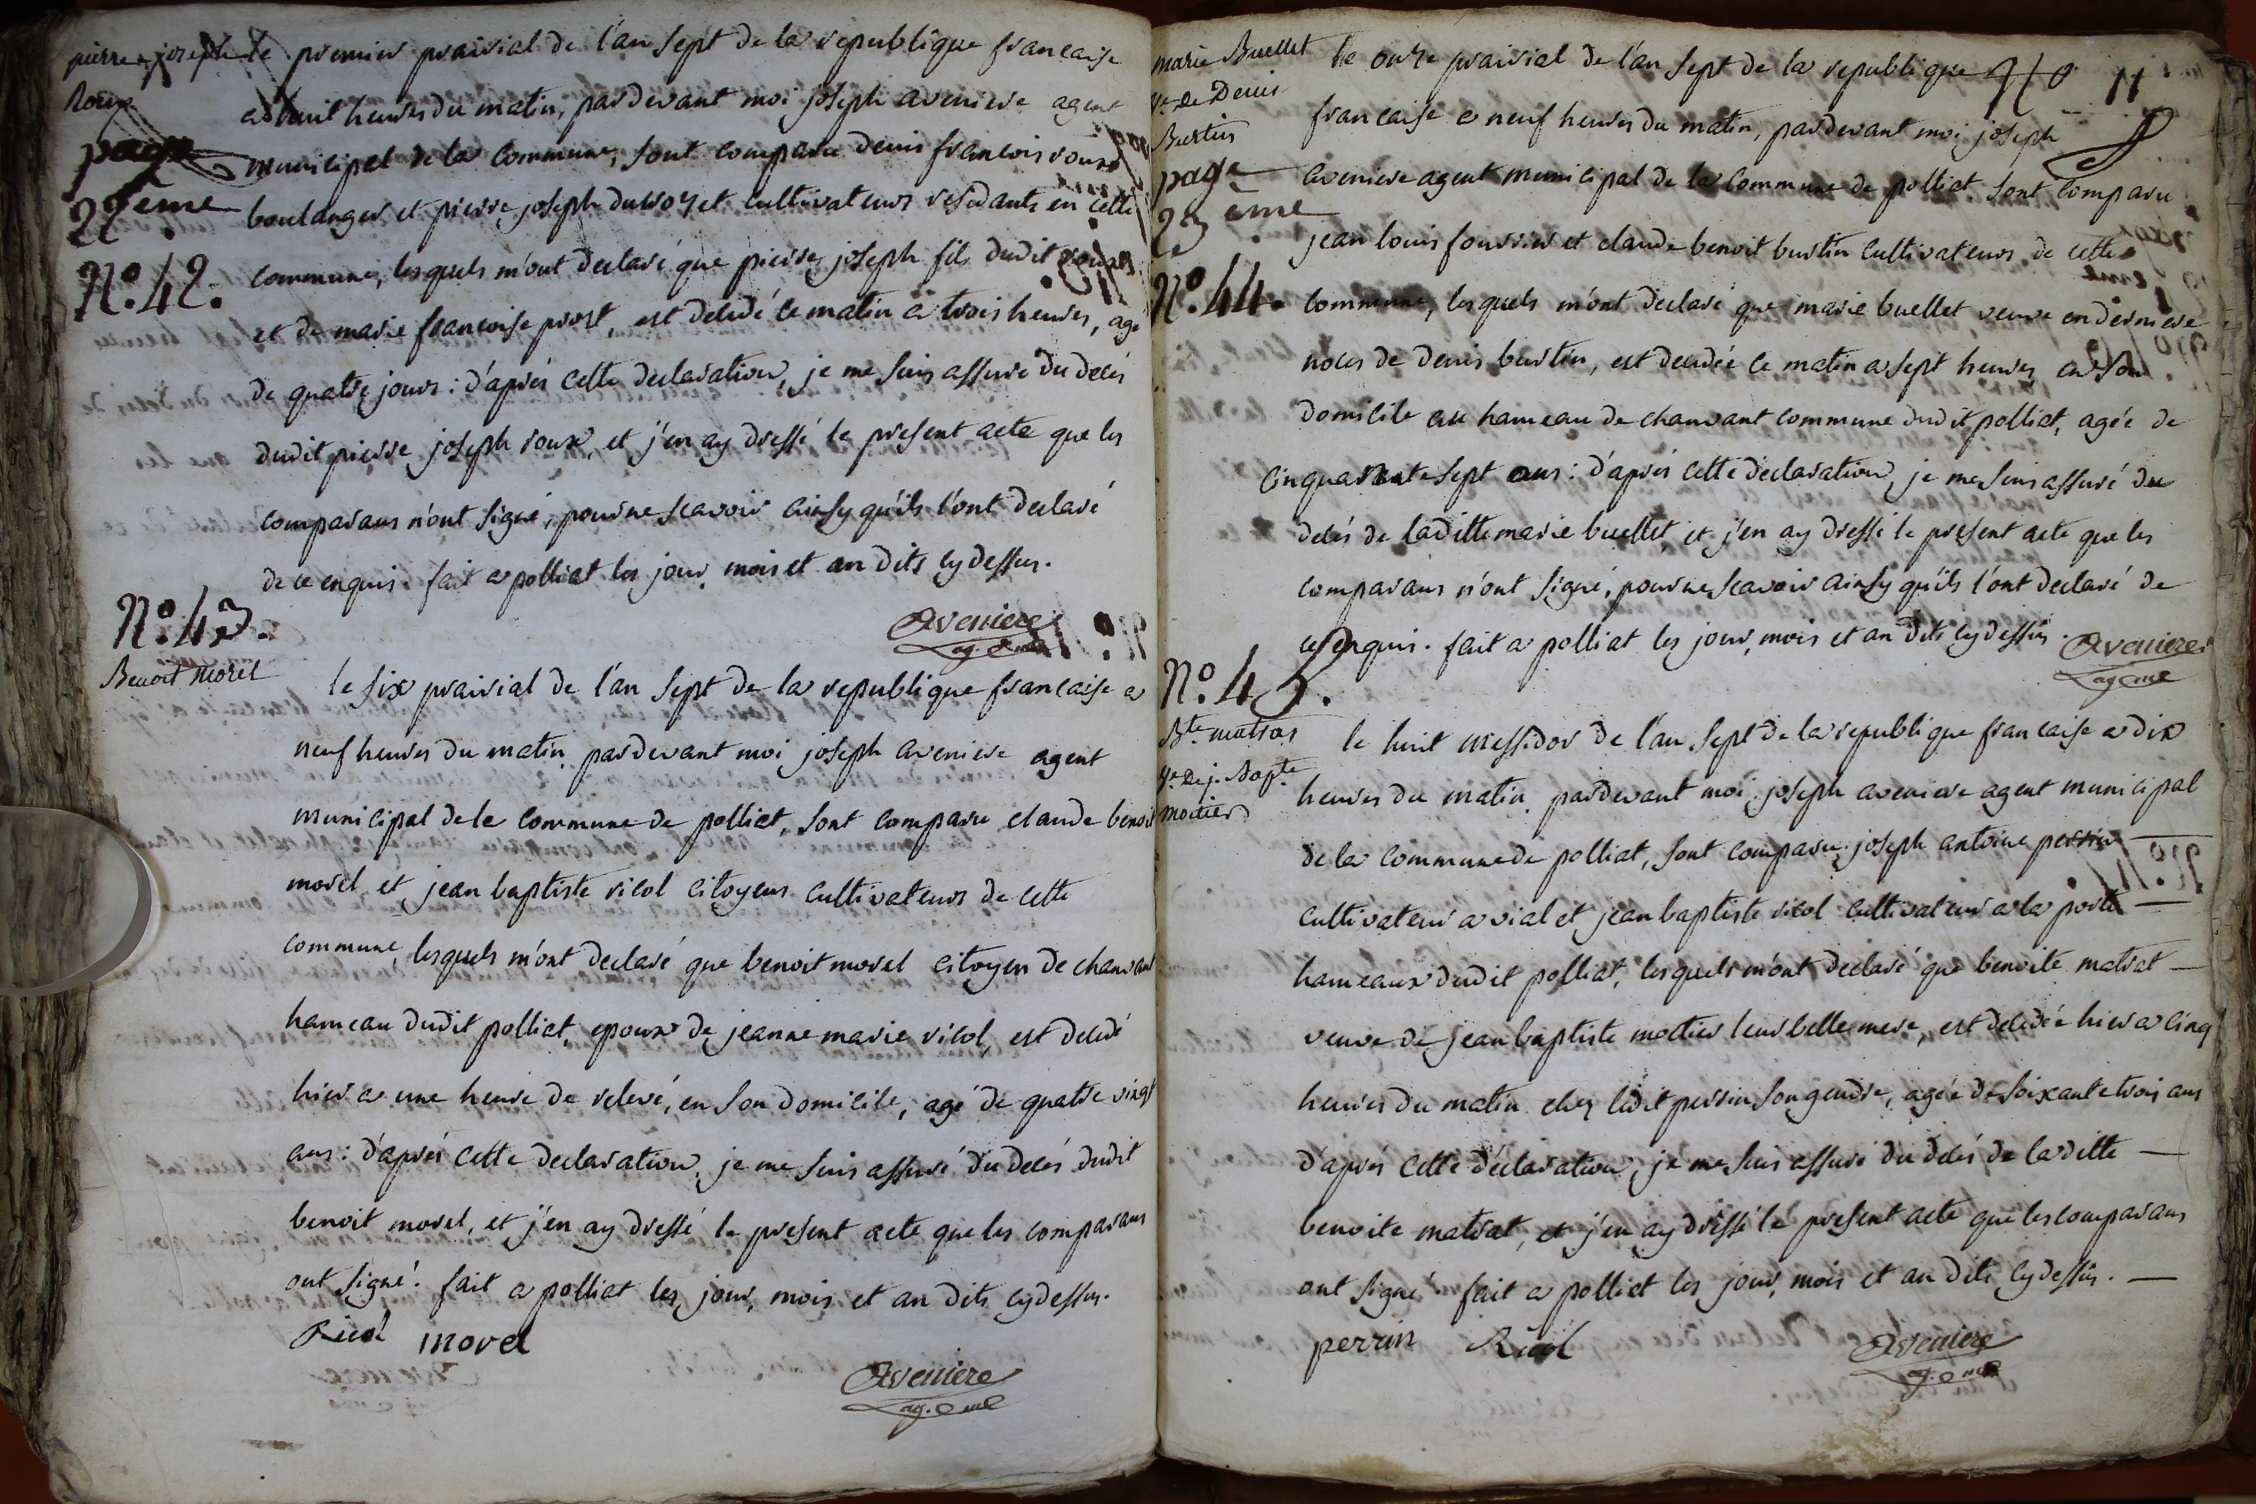 pierre joseph
Roux
page
22eme
N.o 42.
le premier prairial de l'an sept de la republique francaise
a huit heures du matin, pardevant moi joseph aveniere agent
municipal de la commune, sont comparu denis francois roux
boulanger et pierre joseph duvoyet cultivateurs residants en cette
commune, lesquels m'ont declaré que pierre joseph fils dudit roux
et de marie francoise prost, est decedé ce matin a trois heures, agé
de quatre jours : d'aprés cette declaration, je me suis assuré du decés
dudit pierre joseph roux, et j'en ay dressé le present acte que les
comparans n'ont signé, pour ne scavoir ainsy qu'ils l'ont declaré
de ce enquis. fait a polliat les jour, mois et an dits cy dessus.
Aveniere
ag. mal
N.o 43.
Benoit Morel
le six prairial de l'an sept de la republique francaise a
neuf heures du matin, pardevant moi joseph aveniere agent
municipal de la commune de polliat, sont comparu claude benoit
morel et jean baptiste ricol citoyens cultivateurs de cette
commune, lesquels m'ont declaré que benoit morel citoyen de chanvant
hameau dudit polliat, epoux de jeanne marie ricol, est decedé
hier a une heure de relevé, en son domicile, agé de quatre vingt
ans : d'aprés cette declaration, je me suis assuré du decés dudit
benoit morel, et j'en ay dressé le present acte que les comparans
ont signé. fait a polliat les jour, mois et an dits cy dessus.
Ricol morel
Aveniere
ag. mal
marie Buellet
ve de Denis
Burtin
page
23eme
N.o 44.
le onze prairial de l'an sept de la republique
11
francaise a neuf heures du matin, pardevant moi joseph
aveniere agent municipal de la commune de polliat sont comparu
jean louis fourrier et claude benoit burtin cultivateurs de cette
commune, lesquels m'ont declaré que marie buellet veuve en derniere
noces de denis burtin, est decedée ce matin a sept heures, en son
domicile au hameau de chanvant commune dudit polliat, agée de
cinquante sept ans : d'aprés cette declaration, je me suis assuré du
decés de laditte marie buellet, et j'en ay dressé le present acte que les
comparans n'ont signé, pour ne scavoir ainsy qu'ils l'ont declaré de
ce enquis. fait a polliat les jour, mois et an dits cy dessus.
Aveniere
ag. mal
N.o 45.
Bte matras
ve de j. Bapte
moitier
le huit messidor de l'an sept de la republique francaise a dix
heures du matin, pardevant moi joseph aveniere agent municipal
de la commune de polliat, sont comparu joseph antoine perrin
cultivateur a vial et jean baptiste ricol cultivateur a la porte
hameaux dudit polliat, lesquels m'ont declaré que benoite matrat
veuve de jean baptiste moitier leur belle mere, est decedée hier a cinq
heures du matin chez ledit perrin son gendre, agée de soixante trois ans
d'apres cette declaration, je me suis assuré du decés de laditte
benoite matrat, et j'en ay dressé le present acte que les comparans
ont signé. fait a polliat les jour, mois et an dits cy dessus.
perrin Ricol
Aveniere
ag. mal